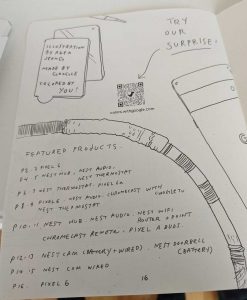 ILLUSTRATION
MADE BY
GOOGLE
COLORED BY
YOU!
TRY
OUR
SURPRISE!
FEATURED PRODUCTS...
P2-3 PIXEL 6
P4-5 NEST HUB, NEST AUDIO,
NEST THERMOSTAT
NEST THERMOSTAT, PIXEL 6A
P8-9 PIXEL 6, NEST AUDIO, CHROMECAST WITH
NEST THERMOSTAT
P10-11 NEST HUB, NEST AUDIO, NEST WIFI
ROUTER & POINT
CHROMECAST REMOTE, PIXEL A BUDS.
P12-13 NEST CAM (BATTERY + WIRED), NEST DOORBELL
(BATTERY)
P14-15 NEST CAM WIRED
P16. PIXEL 6
16